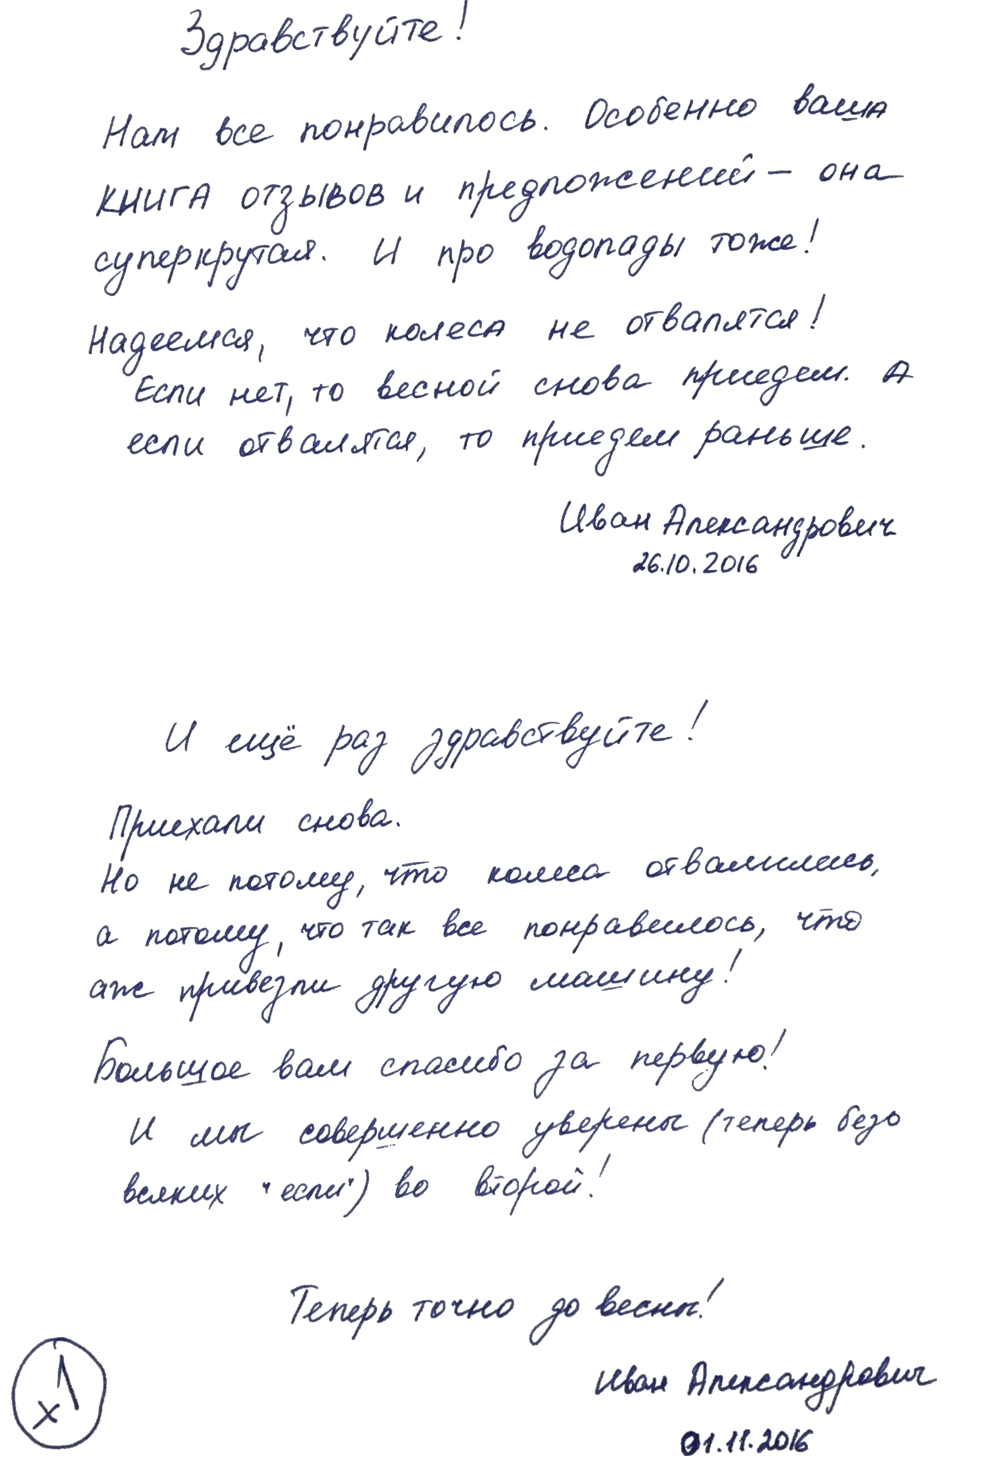 Здравствуйте!
Нам все понравилось. Особенно ваша
КНИГА ОТЗЫВОВ и предложений – она
суперкрутая. И про водопады тоже!
Надеемся, что колеса не отвалятся!
Если нет, то весной снова приедем. А
если отвалятся, то приедем раньше.
Иван Александрович
26.10.2016
И ещё раз здравствуйте!
Приехали снова.
Но не потому, что колеса отвалились,
а потому, что так все понравилось, что
аж привезли другую машину!
Большое вам спасибо за первую!
И мы совершенно уверены (теперь безо
всяких "если") во второй!
Теперь точно до весны!
Иван Александрович
01.11.2016